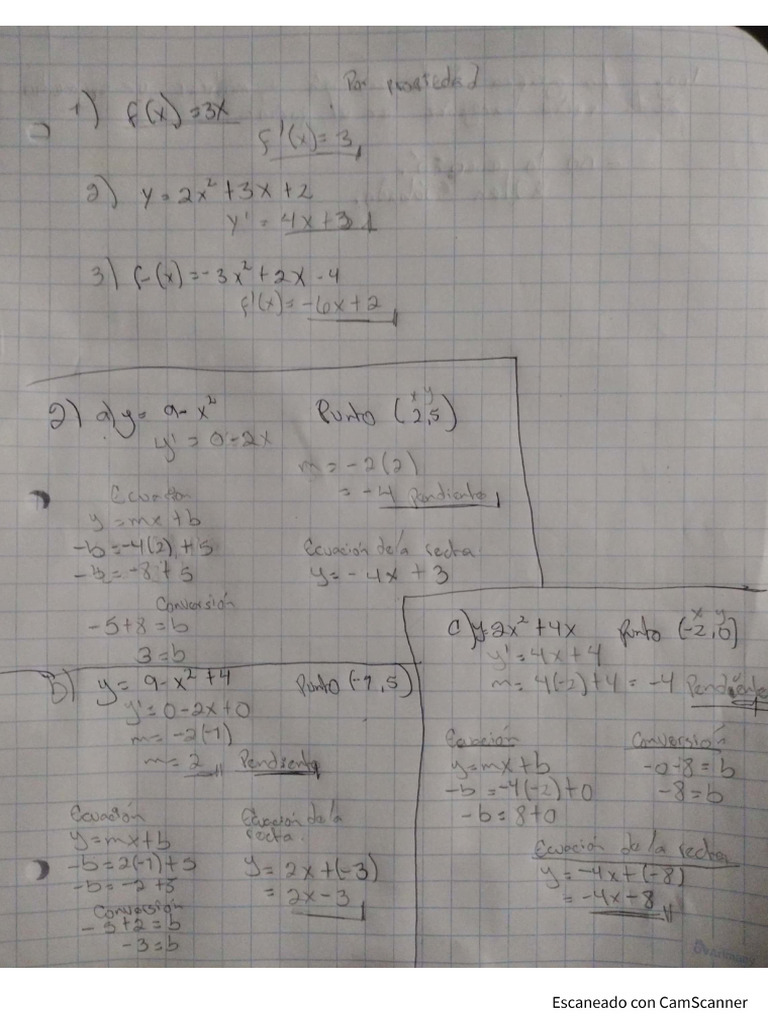 Por propiedad
1) f(x) = 3x
f'(x) = 3
2) y = 2x² + 3x + 2
y' = 4x + 3
3) f(x) = -3x² + 2x - 4
f'(x) = -6x + 2
2) a) y = 9 - x²
Punto (2, 5)
x y
y' = 0 - 2x
m = -2(2)
= -4 Pendiente
Ecuación
y = mx + b
-b = -4(2) + 5
-b = -8 + 5
Conversión
-5 + 8 = b
3 = b
Ecuación de la recta
y = -4x + 3
b) y = 9 - x² + 4
Punto (-1, 5)
y' = 0 - 2x + 0
m = -2(-1)
m = 2 Pendiente
Ecuación
y = mx + b
-b = 2(-1) + 5
-b = -2 + 5
Conversión
-5 + 2 = b
-3 = b
Ecuación de la
recta.
y = 2x + (-3)
= 2x - 3
c) y = 2x² + 4x
Punto (-2, 0)
x y
y' = 4x + 4
m = 4(-2) + 4 = -4 Pendiente
Ecuación
y = mx + b
-b = -4(-2) + 0
-b = 8 + 0
Conversión
-0 - 8 = b
-8 = b
Ecuación de la recta
y = -4x + (-8)
= -4x - 8
Escaneado con CamScanner